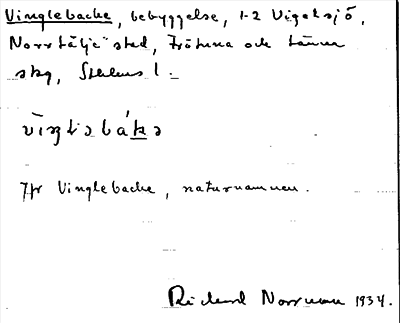 Vinglebacke, bebyggelse, 1-2 Vigelsjö,
Norrtälje stad, Frötuna och Länna
skg, Sthlms l.
Jfr Vinglebacke, naturnamnen.
Rickard Norrman 1934.